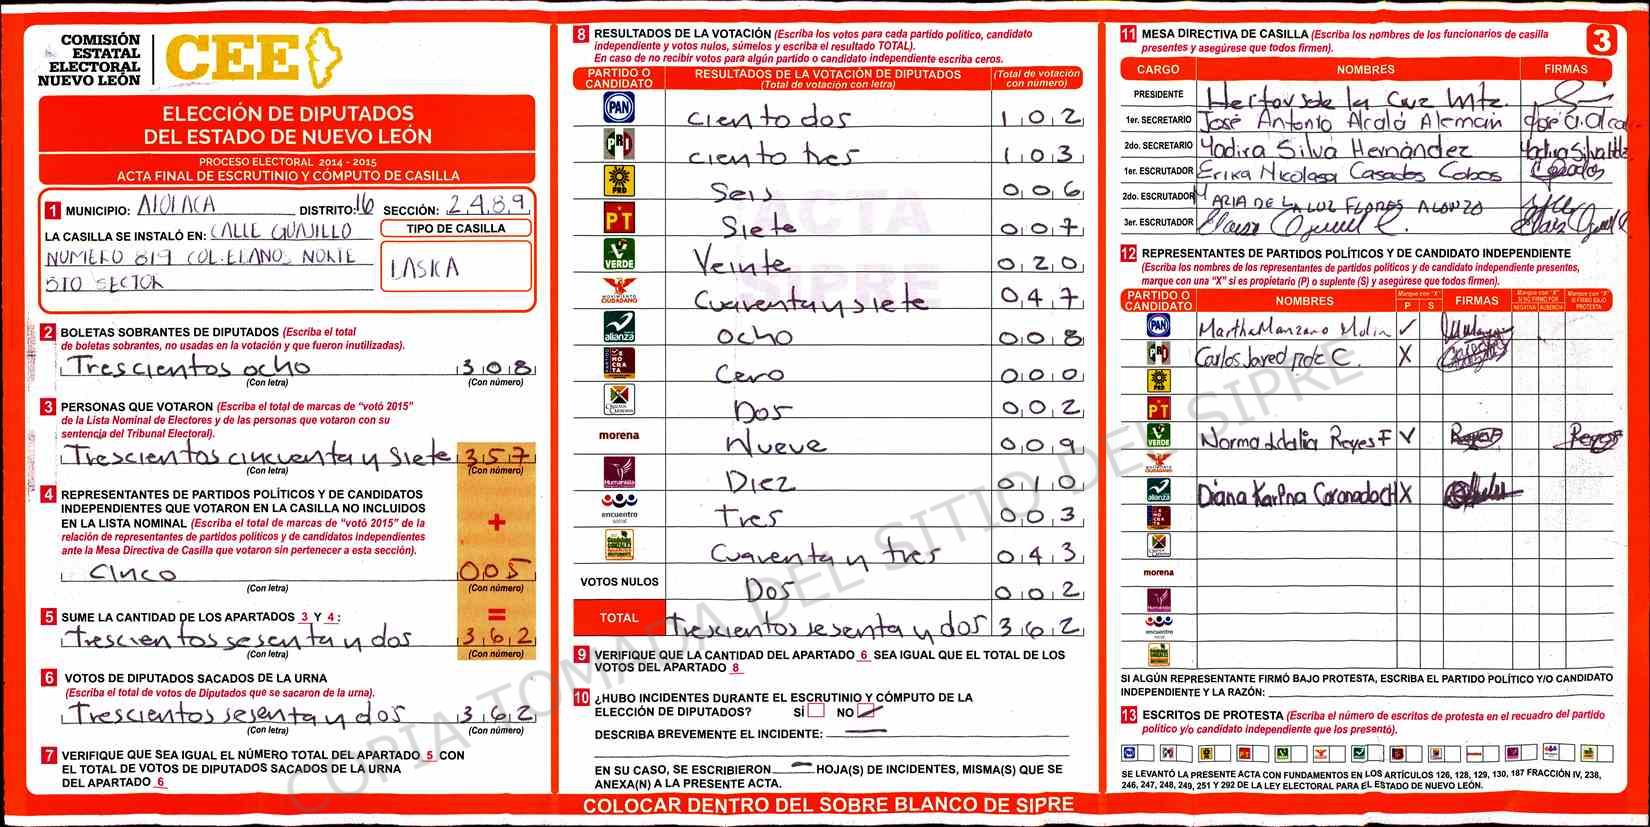 COMISIÓN
ESTATAL
ELECTORAL
NUEVO LEÓN
CEE
ELECCIÓN DE DIPUTADOS
DEL ESTADO DE NUEVO LEÓN
PROCESO ELECTORAL 2014 - 2015
ACTA FINAL DE ESCRUTINIO Y CÓMPUTO DE CASILLA
1 MUNICIPIO: DISTRITO: 16 SECCIÓN: 2489
LA CASILLA SE INSTALÓ EN: CALLE GUAJILLO
NUMERO 819 COL. NORTE
5TO SECTOR
TIPO DE CASILLA
2 BOLETAS SOBRANTES DE DIPUTADOS (Escriba el total
de boletas sobrantes, no usadas en la votación y que fueron inutilizadas).
Trescientos ocho 308
(Con letra) (Con número)
3 PERSONAS QUE VOTARON (Escriba el total de marcas de “votó 2015”
de la Lista Nominal de Electores y de las personas que votaron con su
sentencia del Tribunal Electoral).
Trescientos cincuenta y siete 357
(Con letra) (Con número)
4 REPRESENTANTES DE PARTIDOS POLÍTICOS Y DE CANDIDATOS
INDEPENDIENTES QUE VOTARON EN LA CASILLA NO INCLUIDOS
EN LA LISTA NOMINAL (Escriba el total de marcas de “votó 2015” de la
relación de representantes de partidos políticos y de candidatos independientes
ante la Mesa Directiva de Casilla que votaron sin pertenecer a esta sección).
+
Cinco 005
(Con letra) (Con número)
=
5 SUME LA CANTIDAD DE LOS APARTADOS 3 Y 4:
Trescientos sesenta y dos 362
(Con letra) (Con número)
6 VOTOS DE DIPUTADOS SACADOS DE LA URNA
(Escriba el total de votos de Diputados que se sacaron de la urna).
Trescientos sesenta y dos 362
(Con letra) (Con número)
7 VERIFIQUE QUE SEA IGUAL EL NÚMERO TOTAL DEL APARTADO 5 CON
EL TOTAL DE VOTOS DE DIPUTADOS SACADOS DE LA URNA
DEL APARTADO 6
8 RESULTADOS DE LA VOTACIÓN (Escriba los votos para cada partido político, candidato
independiente y votos nulos, súmelos y escriba el resultado TOTAL).
En caso de no recibir votos para algún partido o candidato independiente escriba ceros.
PARTIDO O CANDIDATO RESULTADOS DE LA VOTACIÓN DE DIPUTADOS (Total de votación con letra) (Total de votación con número)
PAN ciento dos 102
PRI ciento tres 103
PRD Seis 006
PT Siete 007
VERDE Veinte 020
MOVIMIENTO CIUDADANO Cuarenta y siete 047
alianza ocho 008
DEMÓCRATA Cero 000
Dos 002
morena Nueve 009
Humanista Diez 010
encuentro social tres 003
Cuarenta y tres 043
VOTOS NULOS Dos 002
TOTAL Trescientos sesenta y dos 362
ACTA
SIPRE
9 VERIFIQUE QUE LA CANTIDAD DEL APARTADO 6 SEA IGUAL QUE EL TOTAL DE LOS
VOTOS DEL APARTADO 8
10 ¿HUBO INCIDENTES DURANTE EL ESCRUTINIO Y CÓMPUTO DE LA
ELECCIÓN DE DIPUTADOS? SÍ NO
DESCRIBA BREVEMENTE EL INCIDENTE:
EN SU CASO, SE ESCRIBIERON HOJA(S) DE INCIDENTES, MISMA(S) QUE SE
ANEXA(N) A LA PRESENTE ACTA.
COLOCAR DENTRO DEL SOBRE BLANCO DE SIPRE
11 MESA DIRECTIVA DE CASILLA (Escriba los nombres de los funcionarios de casilla
presentes y asegúrese que todos firmen).
3
CARGO NOMBRES FIRMAS
PRESIDENTE Hector de la Cruz Mtz.
1er. SECRETARIO José Antonio Alcalá Alemán
2do. SECRETARIO Yadira Silva Hernández
1er. ESCRUTADOR Erika Nicolasa Casados Cobos
2do. ESCRUTADOR MARIA DE LA LUZ FLORES ALONZO
3er. ESCRUTADOR
12 REPRESENTANTES DE PARTIDOS POLÍTICOS Y DE CANDIDATO INDEPENDIENTE
(Escriba los nombres de los representantes de partidos políticos y de candidato independiente presentes,
marque con una “X” si es propietario (P) o suplente (S) y asegúrese que todos firmen).
PARTIDO O CANDIDATO NOMBRES Marque con "X" P S FIRMAS Marque con "X" SI NO FIRMÓ POR NEGATIVA AUSENCIA Marque con "X" SI FIRMÓ BAJO PROTESTA
PAN Martha Manzano
PRI Carlos Jared C. X
PRD
PT
VERDE Norma Idalia Reyes F Reyes F
alianza Diana Karina Coronado X
morena
Humanista
encuentro social
SI ALGÚN REPRESENTANTE FIRMÓ BAJO PROTESTA, ESCRIBA EL PARTIDO POLÍTICO Y/O CANDIDATO
INDEPENDIENTE Y LA RAZÓN:
13 ESCRITOS DE PROTESTA (Escriba el número de escritos de protesta en el recuadro del partido
político y/o candidato independiente que los presentó).
SE LEVANTÓ LA PRESENTE ACTA CON FUNDAMENTOS EN LOS ARTÍCULOS 126, 128, 129, 130, 187 FRACCIÓN IV, 238,
246, 247, 248, 249, 251 Y 292 DE LA LEY ELECTORAL PARA EL ESTADO DE NUEVO LEÓN.
COPIA TOMADA DEL SITIO DEL SIPRE